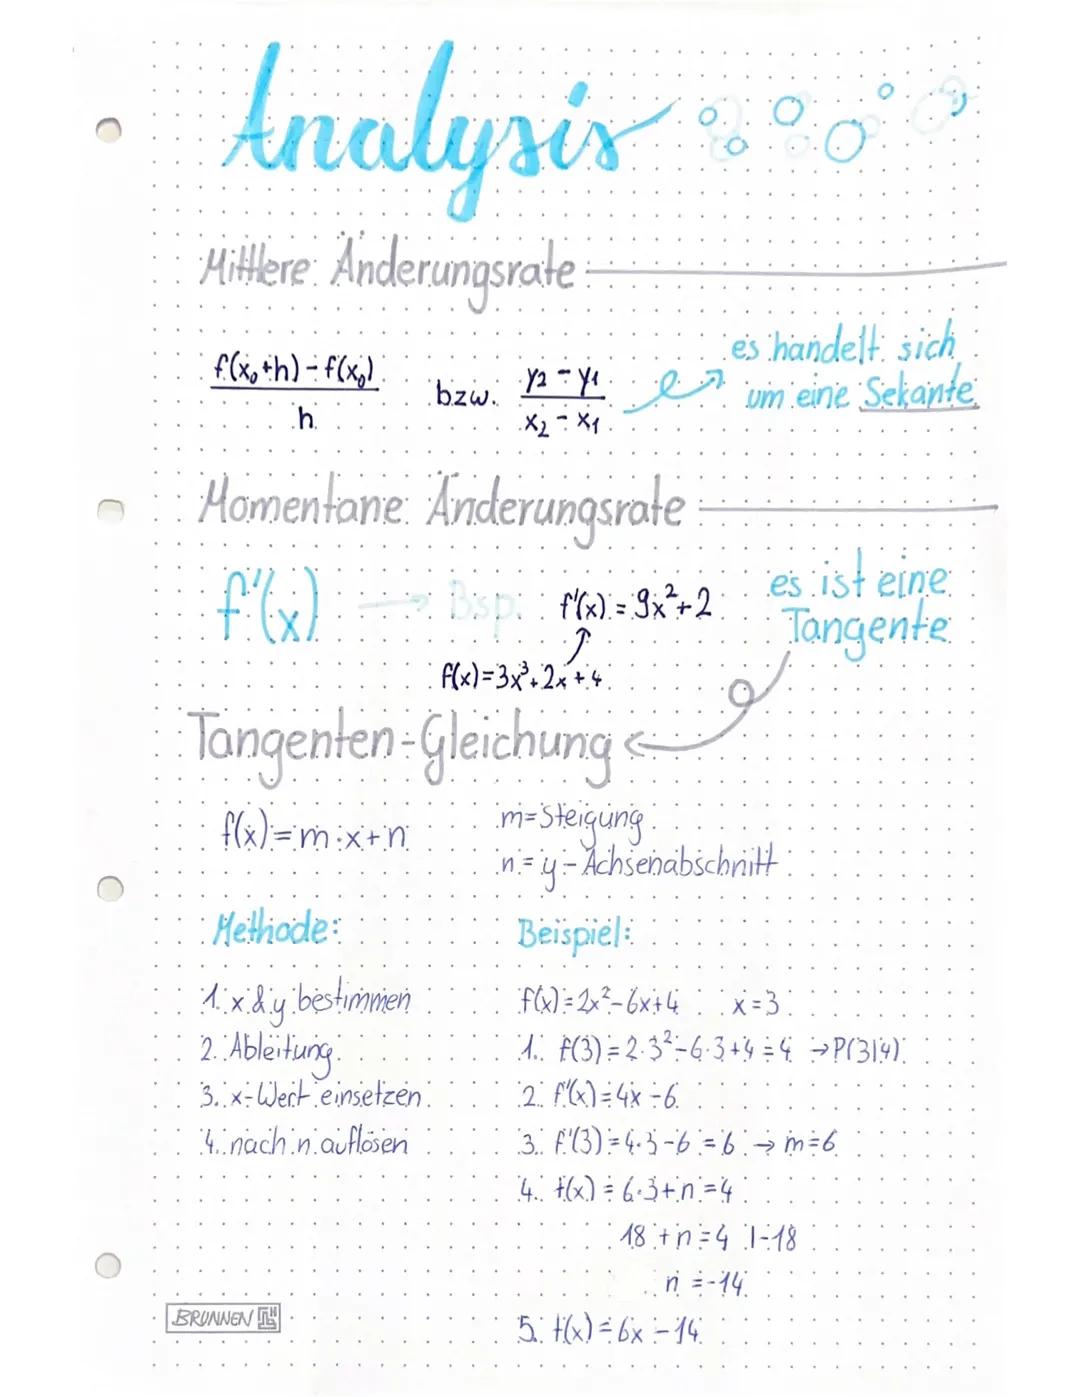 Analysis
Mittlere Änderungsrate
f(x₀+h) - f(x₀)
h
bzw.
y₂ - y₁
x₂ - x₁
es handelt sich
um eine Sekante
Momentane Änderungsrate
f'(x) → Bsp. f'(x) = 9x²+2
es ist eine
Tangente
f(x)=3x³+2x+4
Tangenten-Gleichung
f(x)=m·x+n
m=Steigung
n=y-Achsenabschnitt
Methode:
1. x & y bestimmen
2. Ableitung
3. x-Wert einsetzen
4. nach n auflösen
Beispiel:
f(x)=2x²-6x+4 x=3
1. f(3)=2·3²-6·3+4=4 →P(3|4)
2. f'(x)=4x-6
3. f'(3)=4·3-6=6 → m=6
4. t(x)=6·3+n=4
18+n=4 |-18
n=-14
5. t(x)=6x-14
BRUNNEN